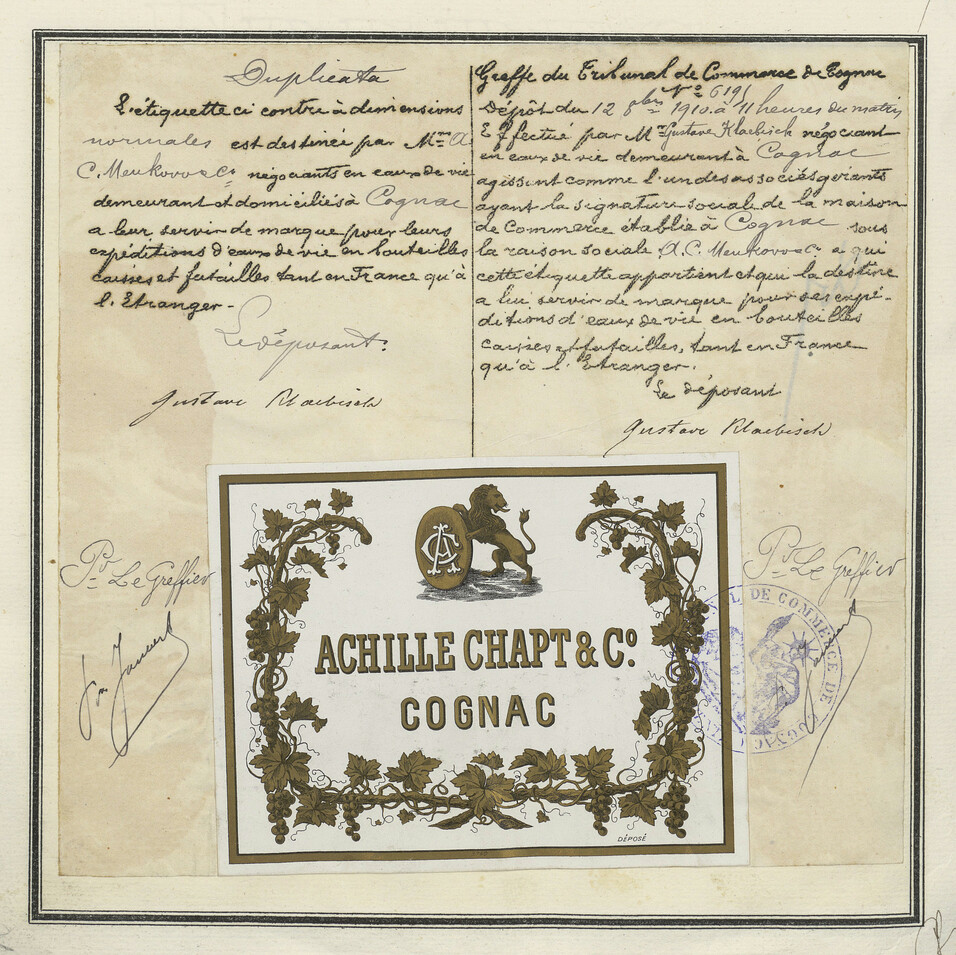 Duplicata
L'étiquette ci contre à dimensions
normales est destinée par Mrs A
C. Meukow & Co négociants en eaux de vie
demeurant et domiciliés à Cognac
a leur servir de marque pour leurs
expéditions d'eaux de vie en bouteilles
caisses et futailles tant en France qu'à
l'Etranger -
Le déposant:
Gustave Klaebisch
Greffe du Tribunal de Commerce de Cognac
No 619
Dépôt du 12 8bre 1910 à 11 heures du matin
Effectué par Mr Gustave Klaebisch négociant
en eaux de vie demeurant à Cognac
agissent comme l'un des associés gerants
ayant la signature sociale de la maison
de Commerce établie à Cognac sous
la raison sociale A.C. Meukow & Co a qui
cette étiquette appartient et qui la destine
a lui servir de marque pour ses expé-
ditions d'eaux de vie en bouteilles
caisses et futailles, tant en France
qu'à l'Etranger.
Le déposant
Gustave Klaebisch
Pr Le Greffier
Pr Le Greffier
AC
ACHILLE CHAPT & Co.
COGNAC
DÉPOSÉ
DE COMMERCE DE COGNAC